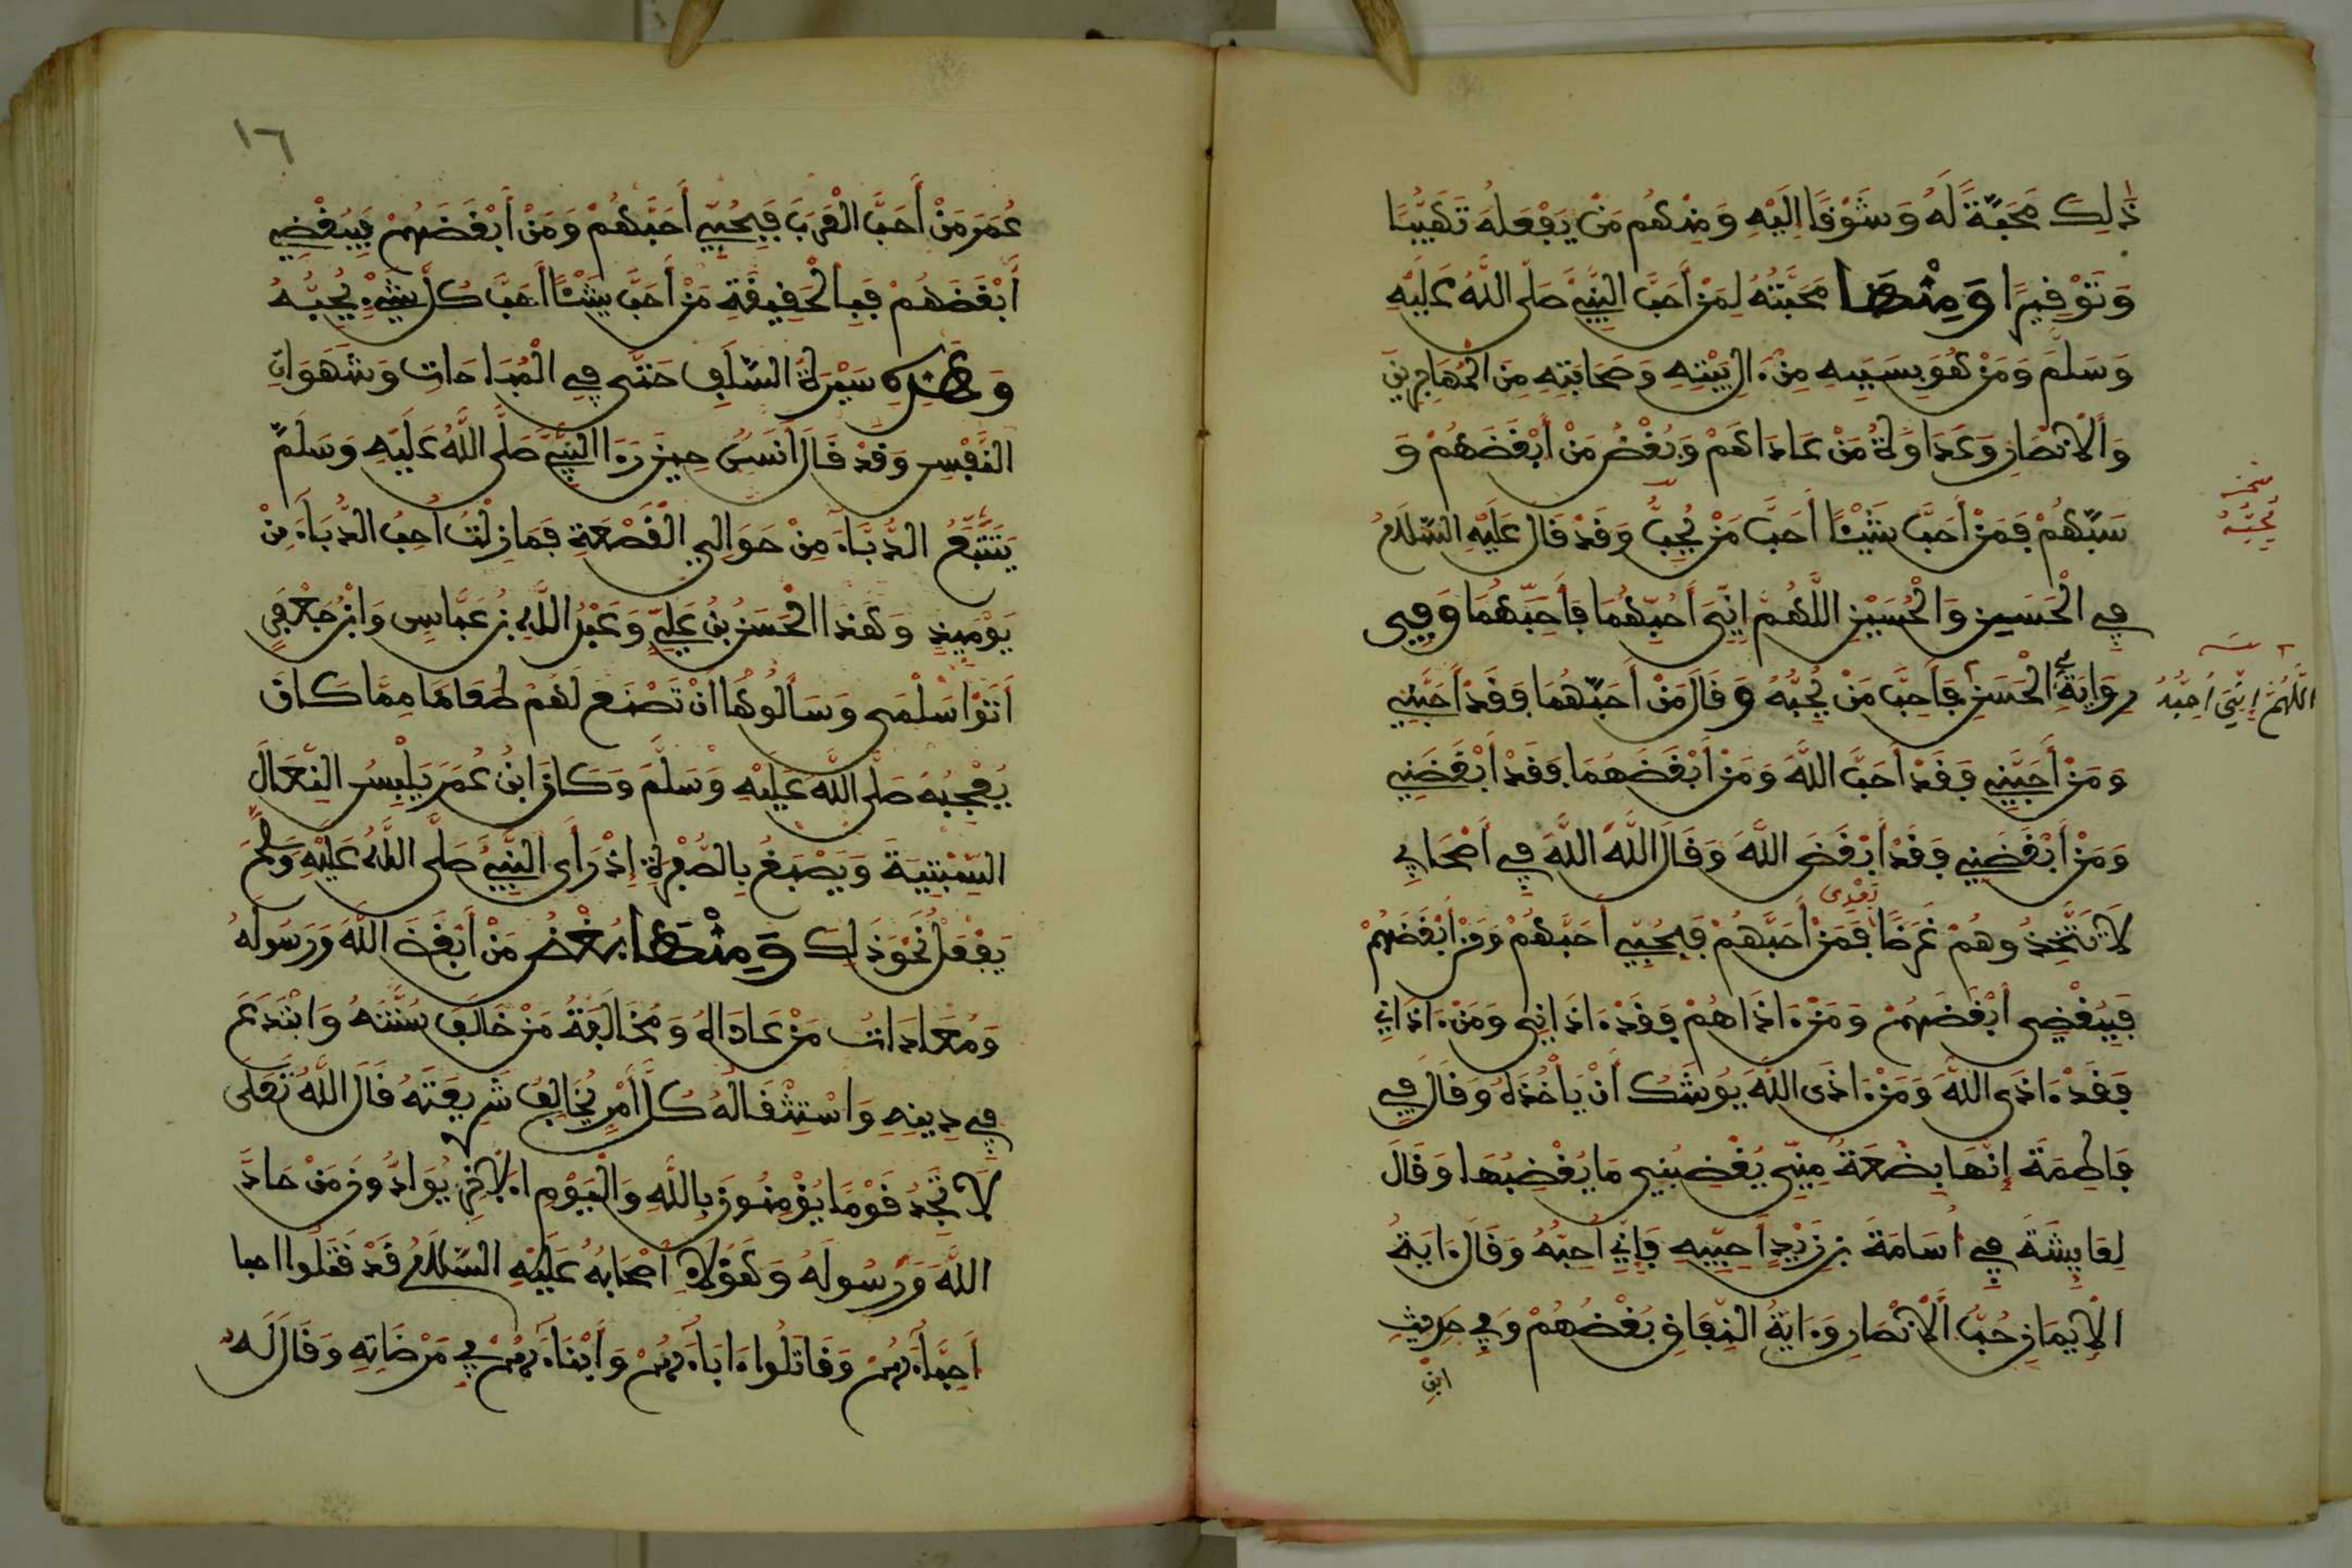 ذَٰلِكَ مَحَبَّةً لَهُ وَشَوْقًا إِلَيْهِ وَمِنْهُم مَنْ يَفْعَلُهُ تَهَيُّبًا
وَتَوْقِيرًا وَمِنْهَا مَحَبَّتُهُ لِمَنْ أَحَبَّ النَّبِيُّ صَلَّى اللَّهُ عَلَيْهِ
وَسَلَّمَ وَمَنْ هُوَ بِسَبَبِهِ مِنْ ءَالِ بَيْتِهِ وَصَحَابَتِهِ مِنَ الْمُهَاجِرِينَ
وَالْأَنْصَارِ وَعَدَاوَةُ مَنْ عَادَاهُمْ وَبُغْضُ مَنْ أَبْغَضَهُمْ وَ
سَبَّهُمْ فَمَنْ أَحَبَّ شَيْئًا أَحَبَّ مَنْ يُحِبُّ وَقَدْ قَالَ عَلَيْهِ السَّلَامُ
يُحِبُّهُ
فِي الْحَسَنِ وَالْحُسَيْنِ اللَّهُمَّ إِنِّي أُحِبُّهُمَا فَأَحِبَّهُمَا وَفِي
رِوَايَةٍ فِي الْحَسَنِ فَأَحِبَّ مَنْ يُحِبُّهُ وَقَالَ مَنْ أَحَبَّهُمَا فَقَدْ أَحَبَّنِي
اللَّهُمَّ إِنِّي أُحِبُّهُ
وَمَنْ أَحَبَّنِي فَقَدْ أَحَبَّ اللَّهَ وَمَنْ أَبْغَضَهُمَا فَقَدْ أَبْغَضَنِي
وَمَنْ أَبْغَضَنِي فَقَدْ أَبْغَضَ اللَّهَ وَقَالَ اللَّهَ اللَّهَ فِي أَصْحَابِي
بَعْدِي
لَا تَتَّخِذُوهُمْ غَرَضًا فَمَنْ أَحَبَّهُمْ فَبِحُبِّي أَحَبَّهُمْ وَمَنْ أَبْغَضَهُمْ
فَبِبُغْضِي أَبْغَضَهُمْ وَمَنْ ءَاذَاهُمْ فَقَدْ ءَاذَانِي وَمَنْ ءَاذَانِي
فَقَدْ ءَاذَى اللَّهَ وَمَنْ ءَاذَى اللَّهَ يُوشَكُ أَنْ يَأْخُذَهُ وَقَالَ فِي
فَاطِمَةَ إِنَّهَا بِضْعَةٌ مِنِّي يُغْضِبُنِي مَا يُغْضِبُهَا وَقَالَ
لِعَايِشَةَ فِي أُسَامَةَ بْنِ زَيْدٍ أَحِبِّيهِ فَإِنِّي أُحِبُّهُ وَقَالَ ءَايَةُ
الْإِيمَانِ حُبُّ الْأَنْصَارِ وَءَايَةُ النِّفَاقِ بُغْضُهُمْ وَفِي حَدِيثِ
ابْنِ
١٦
عُمَرَ مَنْ أَحَبَّ الْعَرَبَ فَبِحُبِّي أَحَبَّهُمْ وَمَنْ أَبْغَضَهُمْ فَبِبُغْضِي
أَبْغَضَهُمْ فَبِالْحَقِيقَةِ مَنْ أَحَبَّ شَيْئًا أَحَبَّ كُلَّ شَيْءٍ يُحِبُّهُ
وَهَذِهِ سِيرَةُ السَّلَفِ حَتَّى فِي الْمُبَاحَاتِ وَشَهَوَاتِ
النَّفْسِ وَقَدْ قَالَ أَنَسٌ حِينَ رَءَا النَّبِيَّ صَلَّى اللَّهُ عَلَيْهِ وَسَلَّمَ
يَتَتَبَّعُ الدُّبَّاءَ مِنْ حَوَالِي الْقَصْعَةِ فَمَا زِلْتُ أُحِبُّ الدُّبَّاءَ مِنْ
يَوْمَيِذٍ وَهَذَا الْحَسَنُ بْنُ عَلِيٍّ وَعَبْدُ اللَّهِ بْنُ عَبَّاسٍ وَابْنُ جَعْفَرٍ
أَتَوْا سَلْمَى وَسَأَلُوهَا أَنْ تَصْنَعَ لَهُمْ طَعَامًا مِمَّا كَانَ
يُعْجِبُهُ صَلَّى اللَّهُ عَلَيْهِ وَسَلَّمَ وَكَانَ ابْنُ عُمَرَ يَلْبِسُ النِّعَالَ
السِّبْتِيَةَ وَيَصْبَغُ بِالصُّفْرَةِ إِذْ رَأَى النَّبِيَّ صَلَّى اللَّهُ عَلَيْهِ وَسَلَّمَ
يَفْعَلُ نَحْوَ ذَلِكَ وَمِنْهَا بُغْضُ مَنْ أَبْغَضَ اللَّهَ وَرَسُولَهُ
وَمُعَادَاتُ مَنْ عَادَاهُ وَمُخَالَفَةُ مَنْ خَالَفَ سُنَّتَهُ وَابْتَدَعَ
فِي دِينِهِ وَاسْتِثْقَالُهُ كُلَّ أَمْرٍ يُخَالِفُ شَرِيعَتَهُ قَالَ اللَّهُ تَعَلَى
لَا تَجِدُ قَوْمًا يُؤْمِنُونَ بِاللَّهِ وَالْيَوْمِ الْآخِرِ يُوَادُّونَ مَنْ حَادَّ
اللَّهَ وَرَسُولَهُ وَهَؤُلَاءِ أَصْحَابُهُ عَلَيْهِ السَّلَامُ قَدْ قَتَلُوا احبا
أَحِبَّاءَهُمْ وَقَاتَلُوا ءَابَاءَهُمْ وَأَبْنَاءَهُمْ فِي مَرْضَاتِهِ وَقَالَ لَهُ